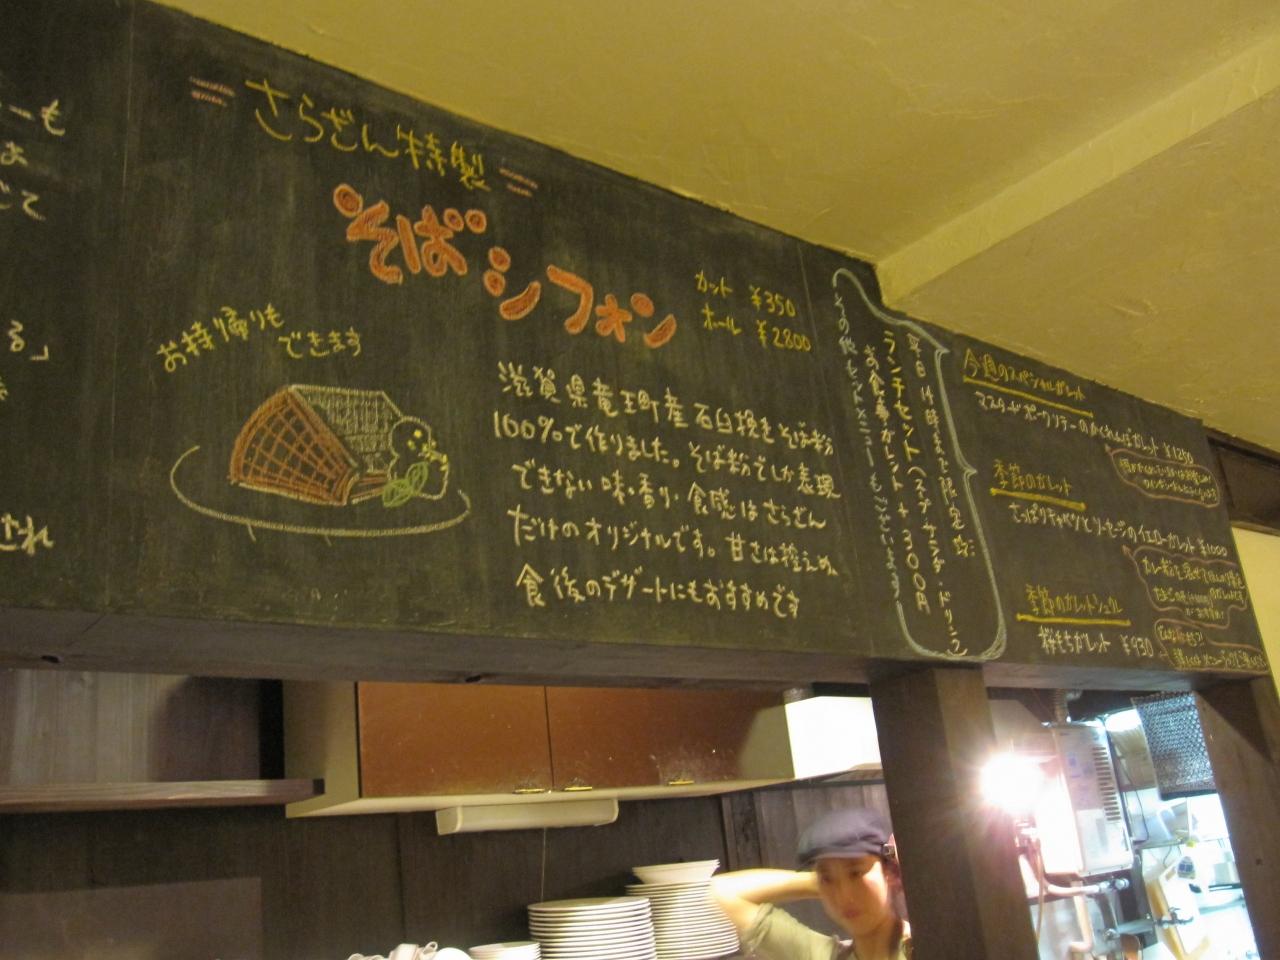 ーも
よ
じて
る」
たれ
さらざん特製
そばシフォン
カット ¥350
ホール ¥2800
お持ち帰りも
できます
滋賀県竜王町産石臼挽きそば粉
100%で作りました。そば粉でしか表現
できない味・香り・食感はさらざん
だけのオリジナルです。甘さは控えめ、
食後のデザートにもおすすめです
平日14時まで限定
ランチセット(スープ・サラダ・ドリンク)
お食事ガレット+300円
その他セットメニューもございます
今週のスペシャルガレット
マスタードポークソテーのかくれんぼガレット ¥1250
季節のガレット
さっぱりキャベツとソーセージのイエローガレット ¥1000
カレー粉を混ぜて
季節のガレットシュクレ
桜もちガレット ¥930